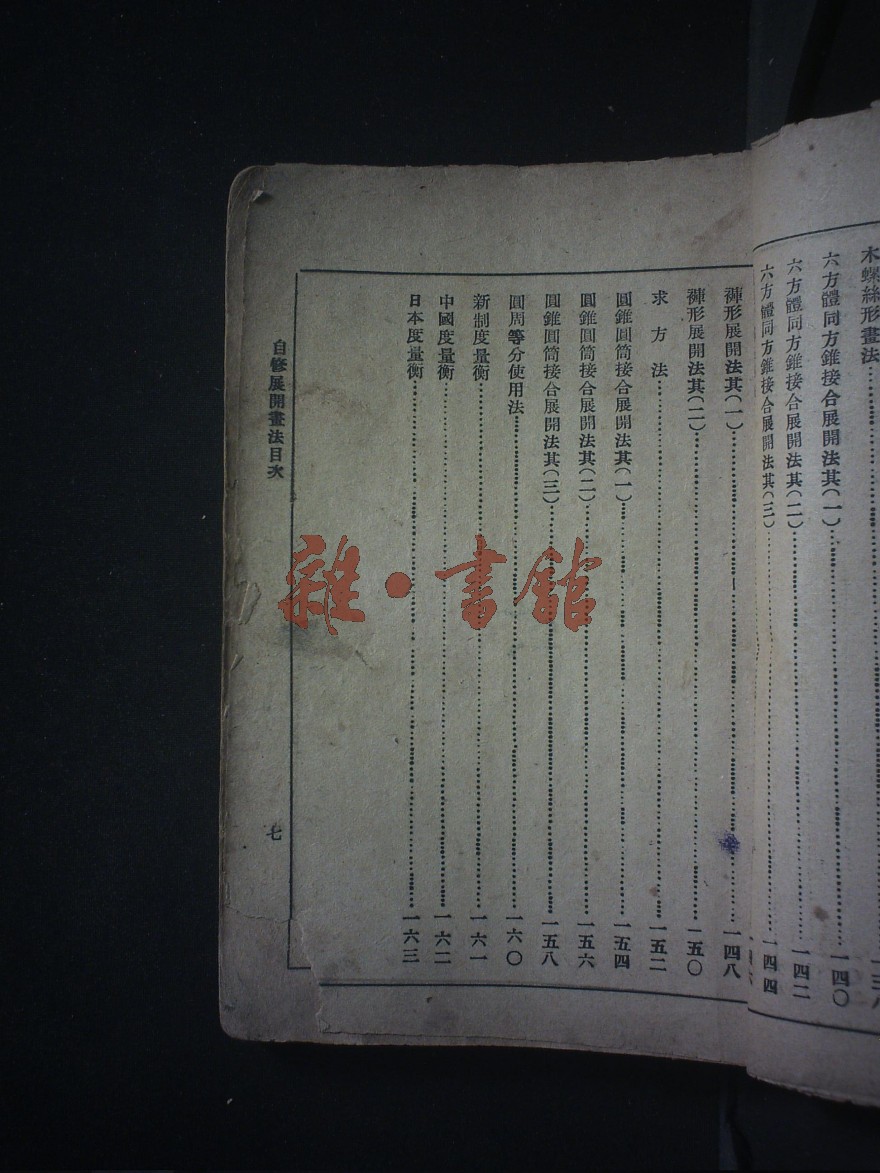 木螺絲形畫法……一三八
六方體同方錐接合展開法其(一)……一四〇
六方體同方錐接合展開法其(二)……一四二
六方體同方錐接合展開法其(三)……一四四
褲形展開法其(一)……一四八
褲形展開法其(二)……一五〇
求方法……一五二
圓錐圓筒接合展開法其(一)……一五四
圓錐圓筒接合展開法其(二)……一五六
圓錐圓筒接合展開法其(三)……一五八
圓周等分使用法……一六〇
新制度量衡……一六一
中國度量衡……一六二
日本度量衡……一六三
自修展開畫法目次
七
雜·書館